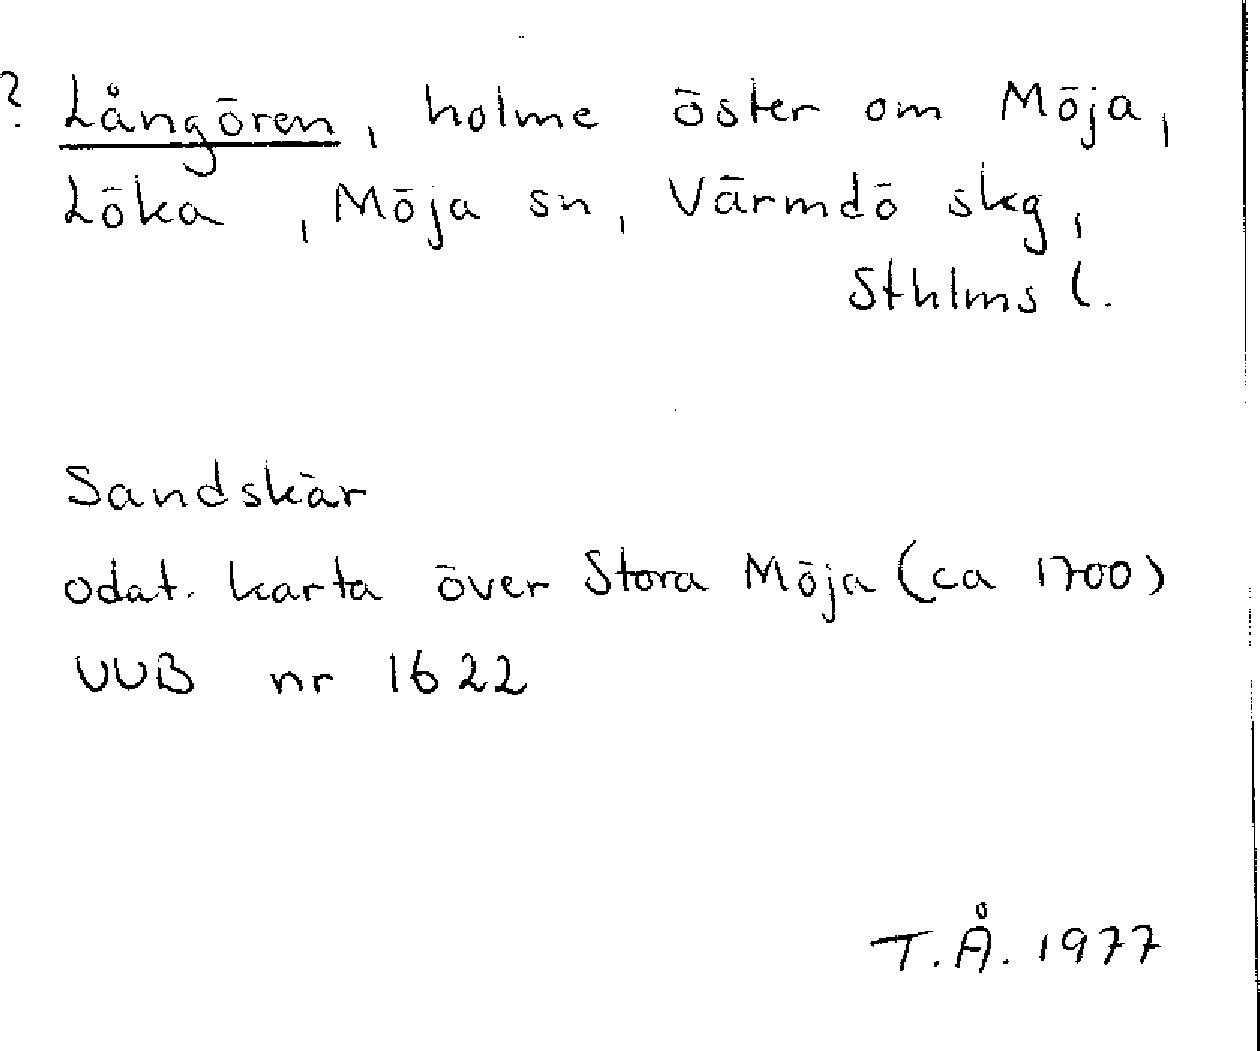 ? Långören, holme öster om Möja,
Löka , Möja sn, Värmdö skg,
Sthlms l.
Sandskär
odat. karta över Stora Möja (ca 1700)
UUB nr 1622
T.Å. 1977